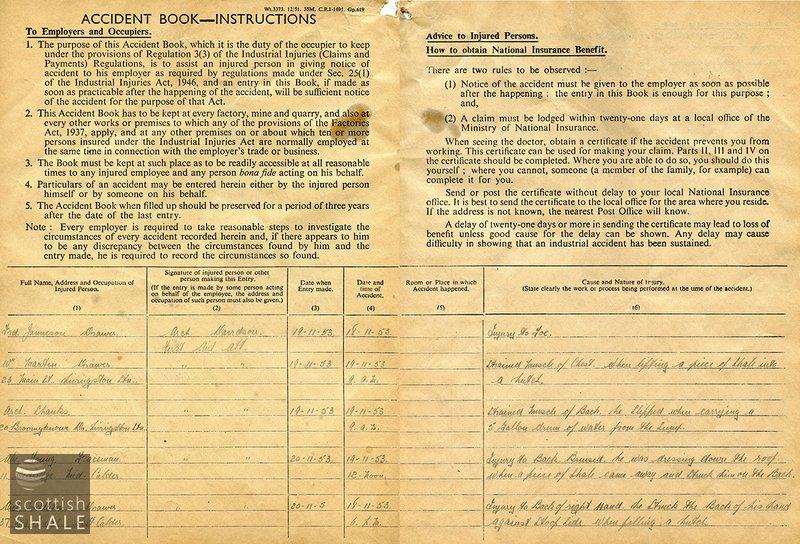 Wt.3373. 12/51. 35M. C.P.I-1691. Gp.619
ACCIDENT BOOK—INSTRUCTIONS
To Employers and Occupiers.
1. The purpose of this Accident Book, which it is the duty of the occupier to keep
under the provisions of Regulation 3(3) of the Industrial Injuries (Claims and
Payments) Regulations, is to assist an injured person in giving notice of
accident to his employer as required by regulations made under Sec. 25(1)
of the Industrial Injuries Act, 1946, and an entry in this Book, if made as
soon as practicable after the happening of the accident, will be sufficient notice
of the accident for the purpose of that Act.
2. This Accident Book has to be kept at every factory, mine and quarry, and also at
every other works or premises to which any of the provisions of the Factories
Act, 1937, apply, and at any other premises on or about which ten or more
persons insured under the Industrial Injuries Act are normally employed at
the same time in connection with the employer's trade or business.
3. The Book must be kept at such place as to be readily accessible at all reasonable
times to any injured employee and any person bona fide acting on his behalf.
4. Particulars of an accident may be entered herein either by the injured person
himself or by someone on his behalf.
5. The Accident Book when filled up should be preserved for a period of three years
after the date of the last entry.
Note : Every employer is required to take reasonable steps to investigate the
circumstances of every accident recorded herein and, if there appears to him
to be any discrepancy between the circumstances found by him and the
entry made, he is required to record the circumstances so found.
Advice to Injured Persons.
How to obtain National Insurance Benefit.
There are two rules to be observed :—
(1) Notice of the accident must be given to the employer as soon as possible
after the happening : the entry in this Book is enough for this purpose ;
and,
(2) A claim must be lodged within twenty-one days at a local office of the
Ministry of National Insurance.
When seeing the doctor, obtain a certificate if the accident prevents you from
working. This certificate can be used for making your claim. Parts II, III and IV on
the certificate should be completed. Where you are able to do so, you should do this
yourself ; where you cannot, someone (a member of the family, for example) can
complete it for you.
Send or post the certificate without delay to your local National Insurance
office. It is best to send the certificate to the local office for the area where you reside.
If the address is not known, the nearest Post Office will know.
A delay of twenty-one days or more in sending the certificate may lead to loss of
benefit unless good cause for the delay can be shown. Any delay may cause
difficulty in showing that an industrial accident has been sustained.
Full Name, Address and Occupation of
Injured Person.
(1)
Signature of injured person or other
person making this Entry.
(If the entry is made by some person acting
on behalf of the employee, the address and
occupation of such person must also be given.)
(2)
Date when
Entry made.
(3)
Date and
time of
Accident.
(4)
Room or Place in which
Accident happened.
(5)
Cause and Nature of Injury.
(State clearly the work or process being performed at the time of the accident.)
(6)
Fred Jamieson Drawer. Arch Davidson. 19-11-53. 18-11-53. Injury to Toe.
First Aid Att.
Wm Martin Drawer " " 19-11-53 19-11-53 Strained Muscle of Chest when lifting a piece of Shale into
23 Main St. Livingston Stn. 9. a.m. a hutch.
Arch. Shanks. " " 19-11-53 19-11-53 Strained Muscle of Back. he Slipped when carrying a
20 Broomyknowe Dr. Livingston Stn 9. a.m. 5 Gallon drum of water from the Sump.
Young Faceman " " 20-11-53 19-11-53. Injury to Back Bruised. he was dressing down the roof
Mid-Calder 12-Noon. when a piece of Shale came away and Struck him on the Back.
Drawer " " 20-11-5 18-11-53 Injury to Back of right Hand he Struck the Back of his hand
Calder. against Stoop Side when filling a hutch.
scottish
SHALE